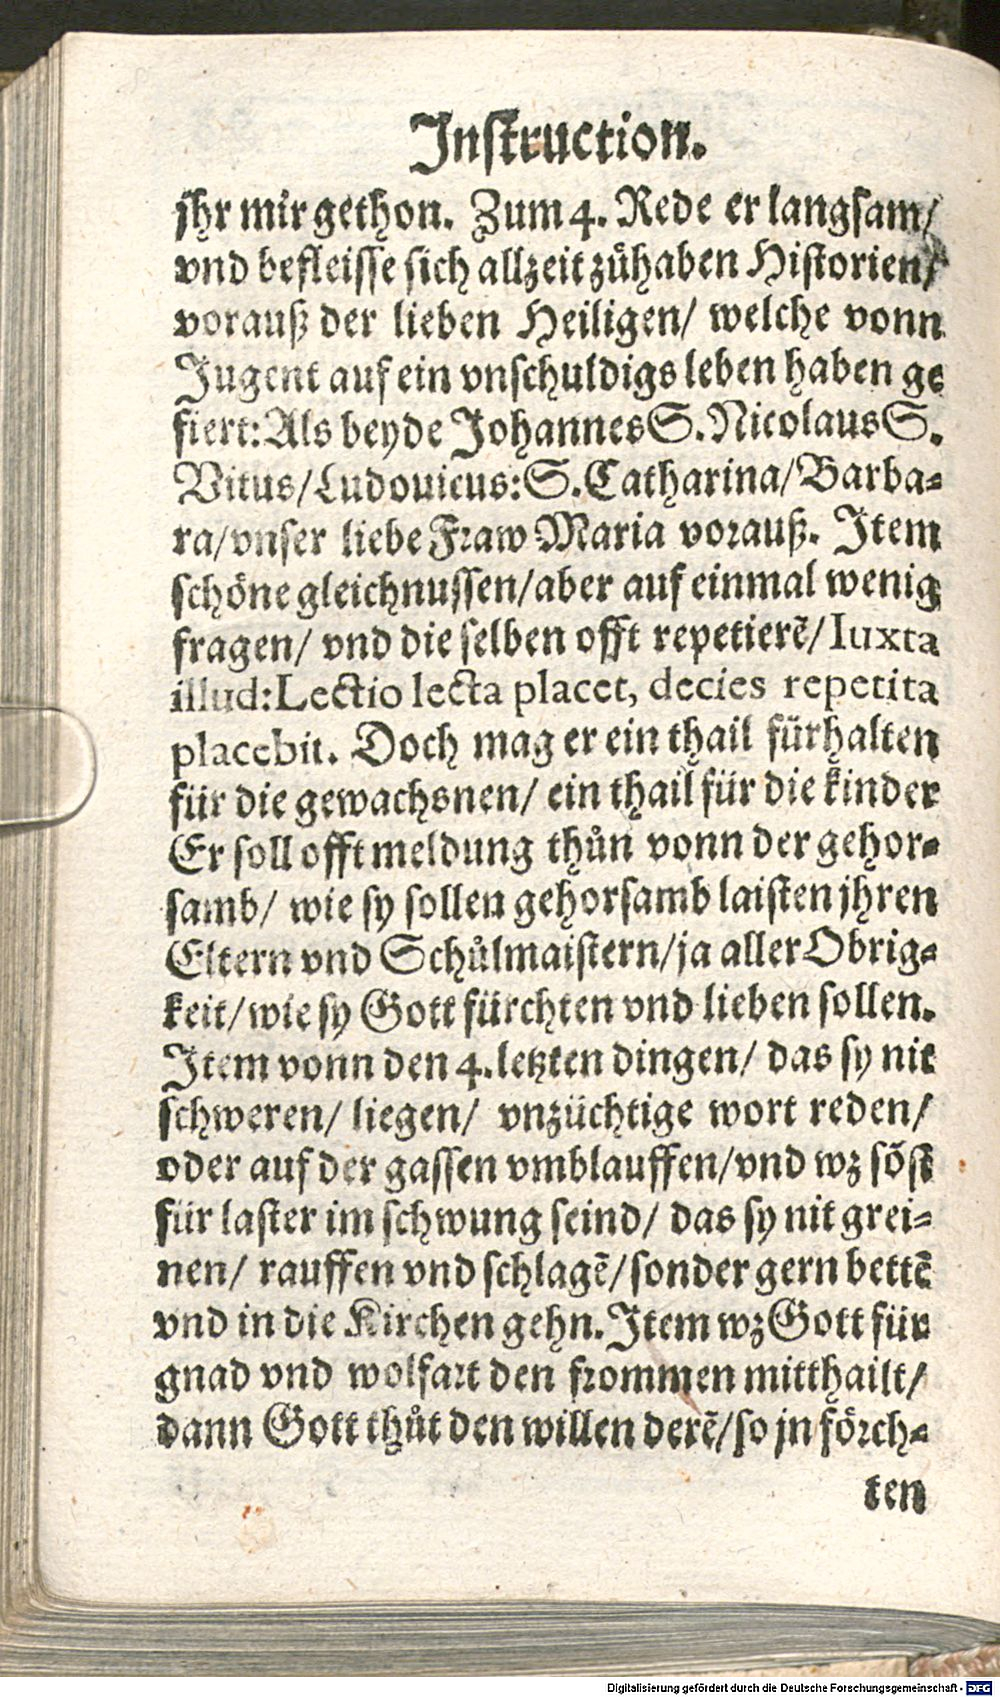 Instruction.
jhr mir gethon. Zum 4. Rede er langsam/
vnd befleisse sich allzeit zůhaben Historien/
vorauß der lieben Heiligen/ welche vonn
Jugent auf ein vnschuldigs leben haben ge
fiert: Als beyde Johannes S. Nicolaus S.
Vitus/ Ludouicus: S. Catharina/ Barba-
ra/ vnser liebe Fraw Maria vorauß. Item
schöne gleichnussen/ aber auf einmal wenig
fragen/ vnd die selben offt repetierẽ/ Iuxta
illud: Lectio lecta placet, decies repetita
placebit. Doch mag er ein thail fürhalten
für die gewachsnen/ ein thail für die kinder
Er soll offt meldung thůn vonn der gehor-
samb/ wie sy sollen gehorsamb laisten jhren
Eltern vnd Schůlmaistern/ ja aller Obrig-
keit/ wie sy Gott fürchten vnd lieben sollen.
Item vonn den 4. letzten dingen/ das sy nit
schweren/ liegen/ vnzüchtige wort reden/
oder auf der gassen vmblauffen/ vnd wz sõst
für laster im schwung seind/ das sy nit grei-
nen/ rauffen vnd schlagẽ/ sonder gern bettẽ
vnd in die Kirchen gehn. Item wz Gott für
gnad vnd wolfart den frommen mitthailt/
dann Gott thůt den willen derẽ/ so jn förch-
ten
Digitalisierung gefördert durch die Deutsche Forschungsgemeinschaft - DFG